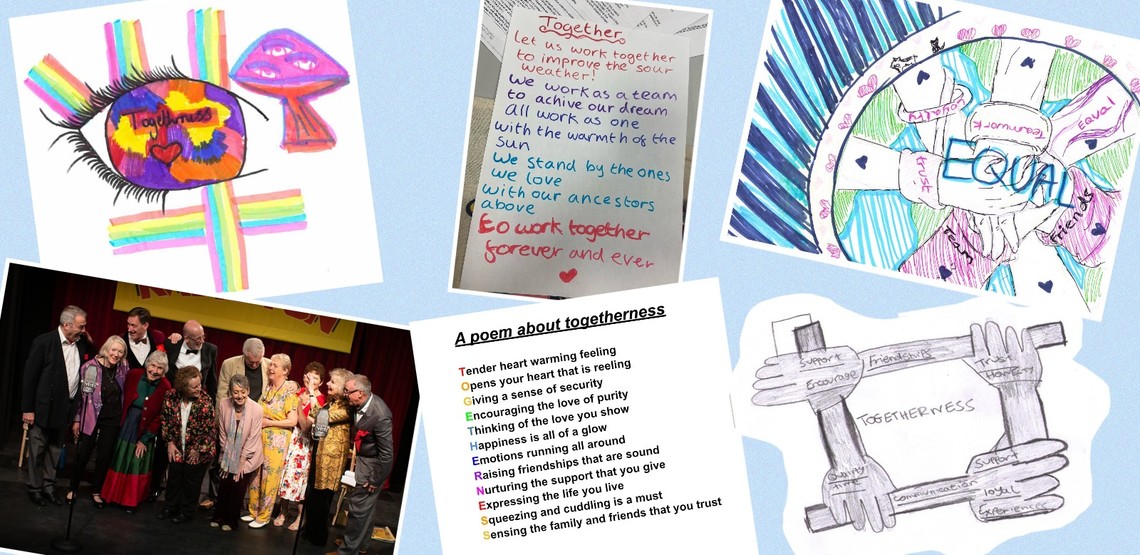 Togetherness
Together
let us work together
to improve the sour
weather!
We work as a team
to achive our dream
All work as one
with the warmth of the
sun
We stand by the ones
we love
with our ancestors
above
to work together
forever and ever
Loyalty
Teamwork
EQUAL
trust
EQUAL
Friends
A poem about togetherness
Tender heart warming feeling
Opens your heart that is reeling
Giving a sense of security
Encouraging the love of purity
Thinking of the love you show
Happiness is all of a glow
Emotions running all around
Raising friendships that are sound
Nurturing the support that you give
Expressing the life you live
Squeezing and cuddling is a must
Sensing the family and friends that you trust
Support
Encourage
Friendships
Trust
TOGETHERNESS
Quality
time
communication
Support
loyal
Experiences